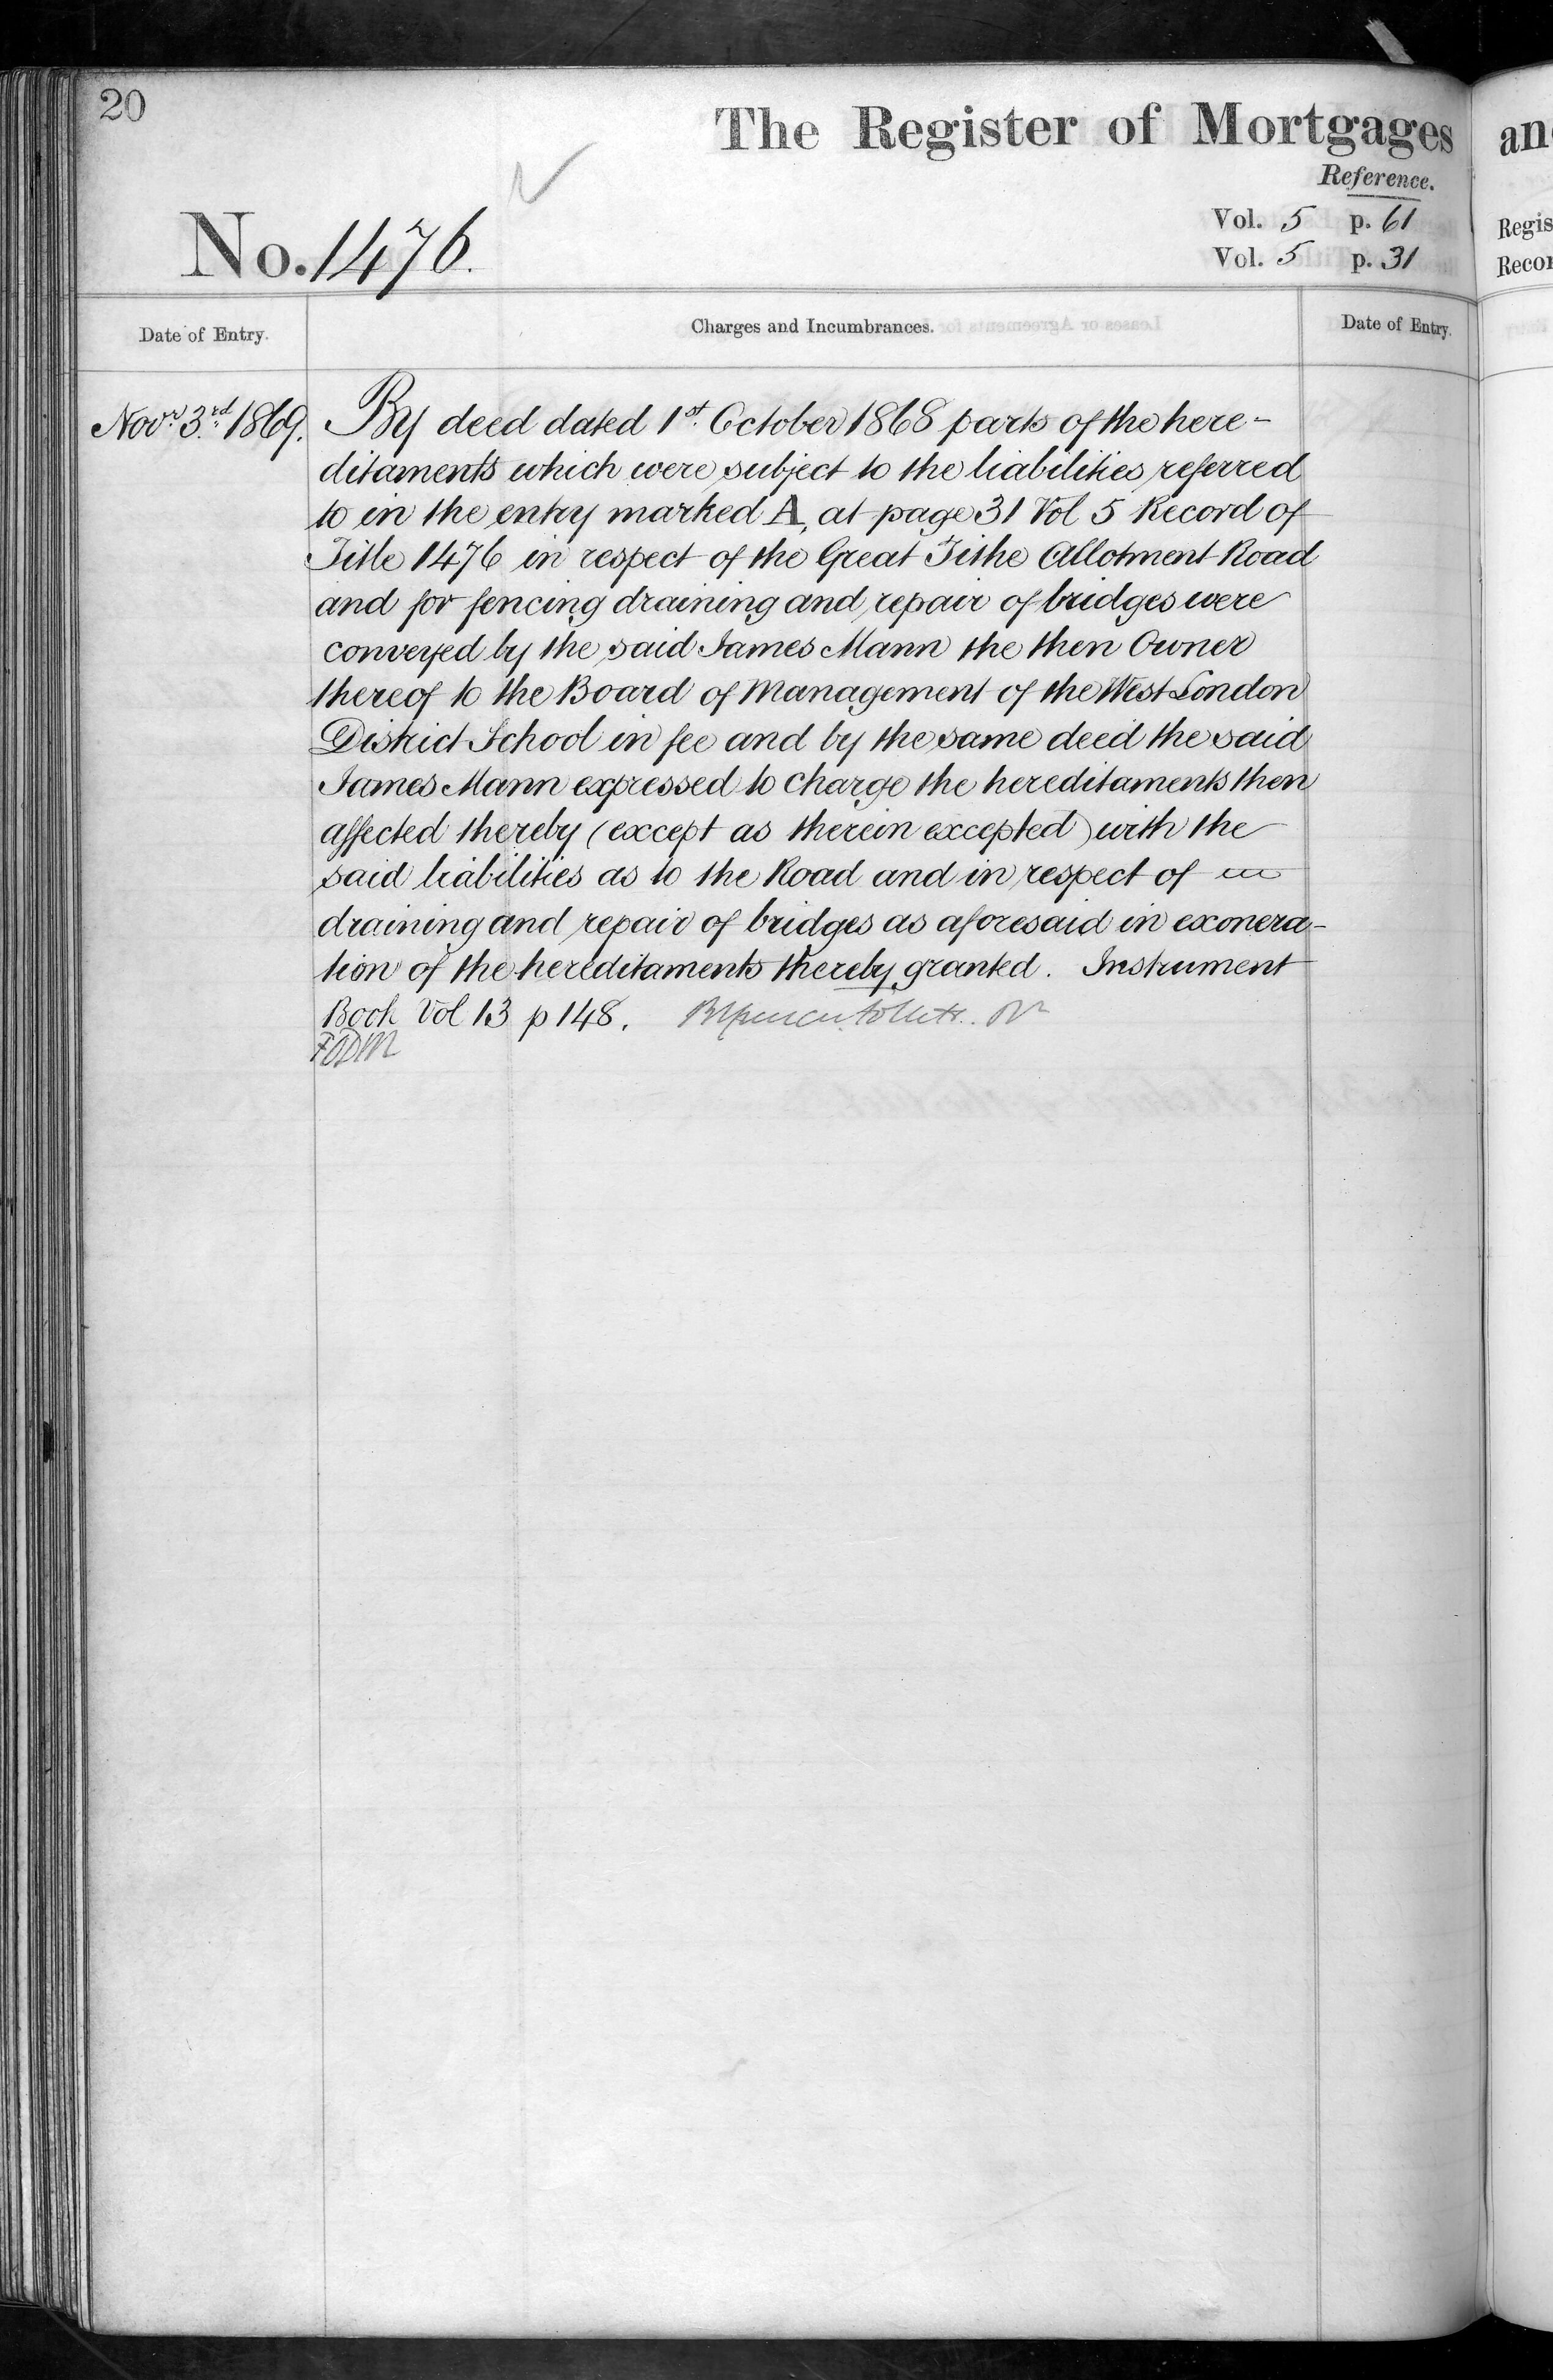 20
The Register of Mortgages
Reference.
No. 1476.
Vol. 5 p. 61
Vol. 5 p. 31
Date of Entry.
Charges and Incumbrances.
Date of Entry.
Novr. 3rd. 1869.
By deed dated 1st. October 1868 parts of the here-
ditaments which were subject to the liabilities referred
to in the entry marked A, at page 31 Vol 5 Record of
Title 1476 in respect of the Great Tithe Allotment Road
and for fencing draining and repair of bridges were
conveyed by the said James Mann the then Owner
thereof to the Board of Management of the West London
District School in fee and by the same deed the said
James Mann expressed to charge the hereditaments then
affected thereby (except as therein excepted) with the
said liabilities as to the Road and in respect of
draining and repair of bridges as aforesaid in exonera-
tion of the hereditaments thereby granted. Instrument
Book Vol 13 p 148.
an
Regis
Recor